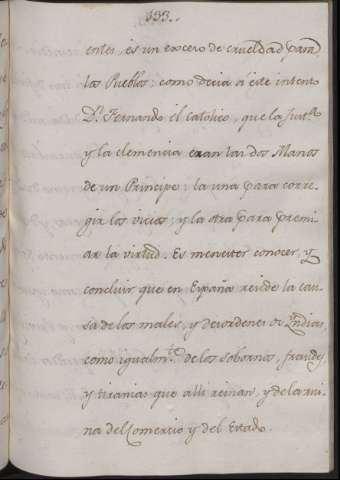 133.
entes, es un excero de crueldad para
los Pueblos; como decia á éste intento
Dn. Fernando el Catolico, que la Justa.
y la clemencia eran las dos Manos
de un Principe; la una para corre-
gir los vicios; y la otra para premi-
ar la virtud. Es menester conocer, y
concluir que en España reside la cau-
sa de los males, y desordenes de Yndias,
como igualmte. de los sobornos, fraudes,
y tiranias que alli reinan, y de la rui-
na del Comercio y del Estado.